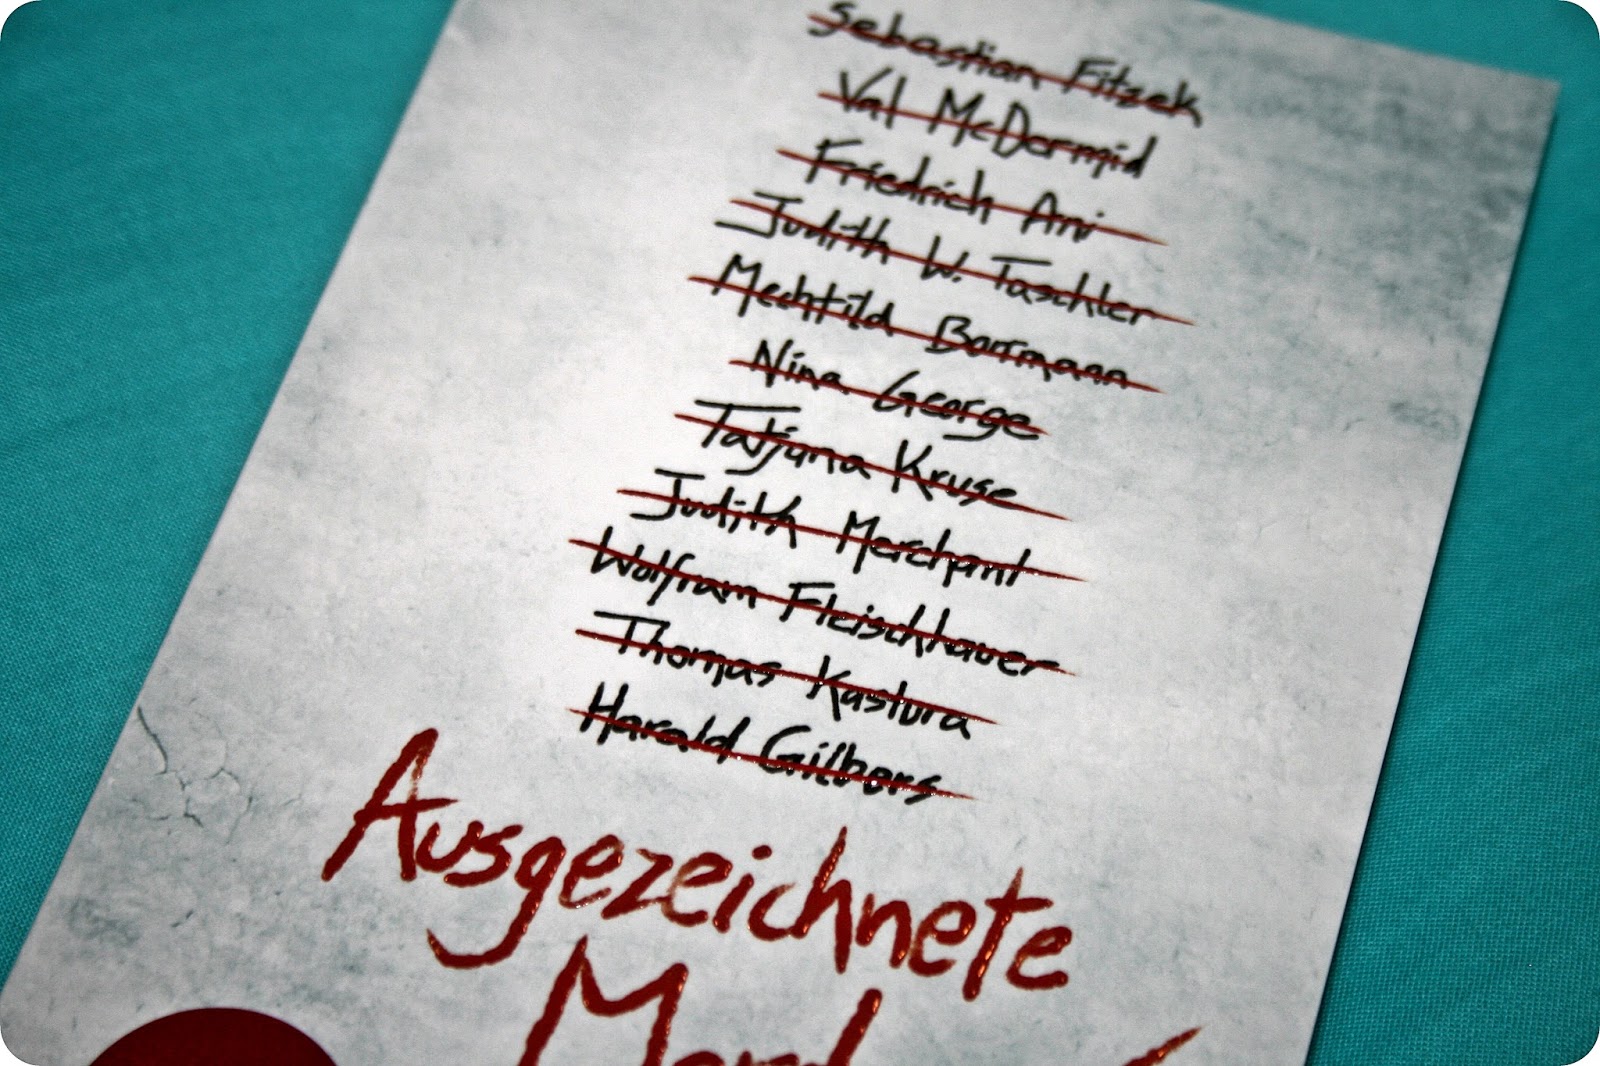 Sebastian Fitzek
Val McDermid
Friedrich Ani
Judith W. Taschler
Mechtild Borrmann
Nina George
Tatjana Kruse
Judith Merchant
Wolfram Fleischhauer
Thomas Kastura
Harald Gilbers
Ausgezeichnete